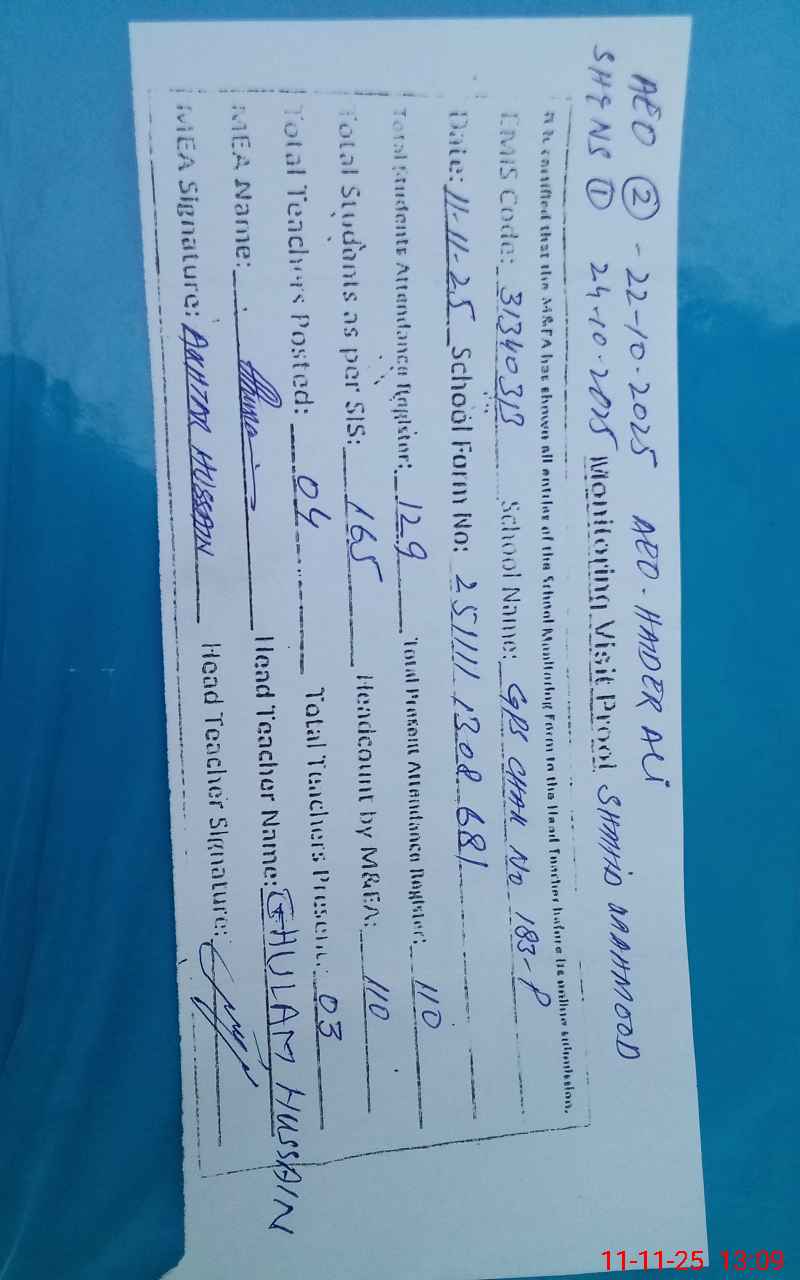 AEO ② - 22-10-2025 AEO - HAIDER ALI
SH&NS ① 24-10-2025 SHAHID MAHMOOD
Monitoring Visit Proof
It is certified that the M&EA has shown all entries of the School Monitoring Form to the Head Teacher before its online submission.
EMIS Code: 31340313 School Name: GPS CHAK No 183-P
Date: 11-11-25 School Form No: 251111 1308 681
Total Students Attendance Register: 129 Total Present Attendance Register: 110
Total Students as per SIS: 165 Headcount by M&EA: 110
Total Teachers Posted: 04 Total Teachers Present: 03
MEA Name: Head Teacher Name: GHULAM HUSSAIN
MEA Signature: AKHTAR HUSSAIN Head Teacher Signature:
11-11-25 13:09